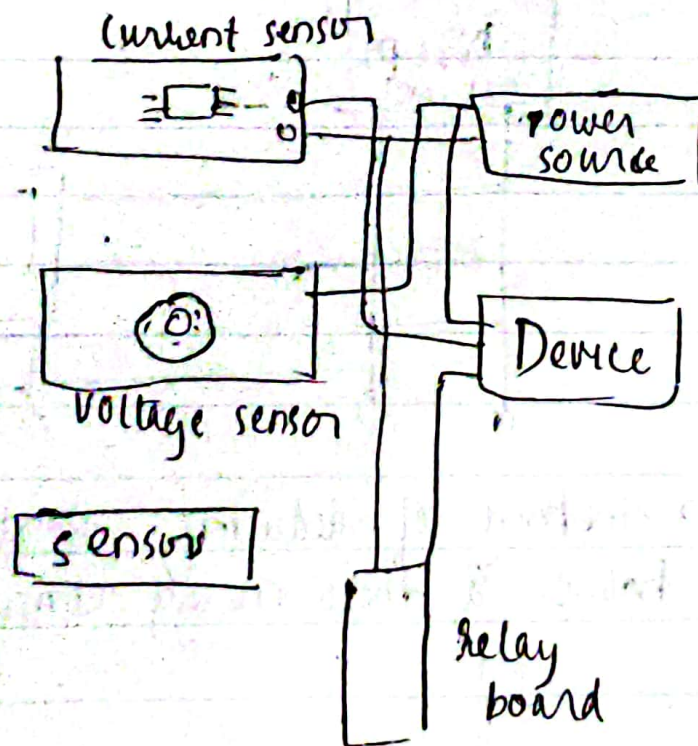 Current sensor
power
source
Device
Voltage sensor
Sensor
relay
board